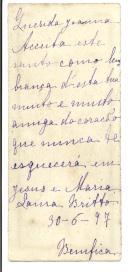 Querida Joanna
Acceita este
santo como lem
brança d'esta tua
muito e muito
amiga do coração
que nunca te
esquecerá, em
Jesus e Maria
Laura Britto
30-6-97
Bemfica.